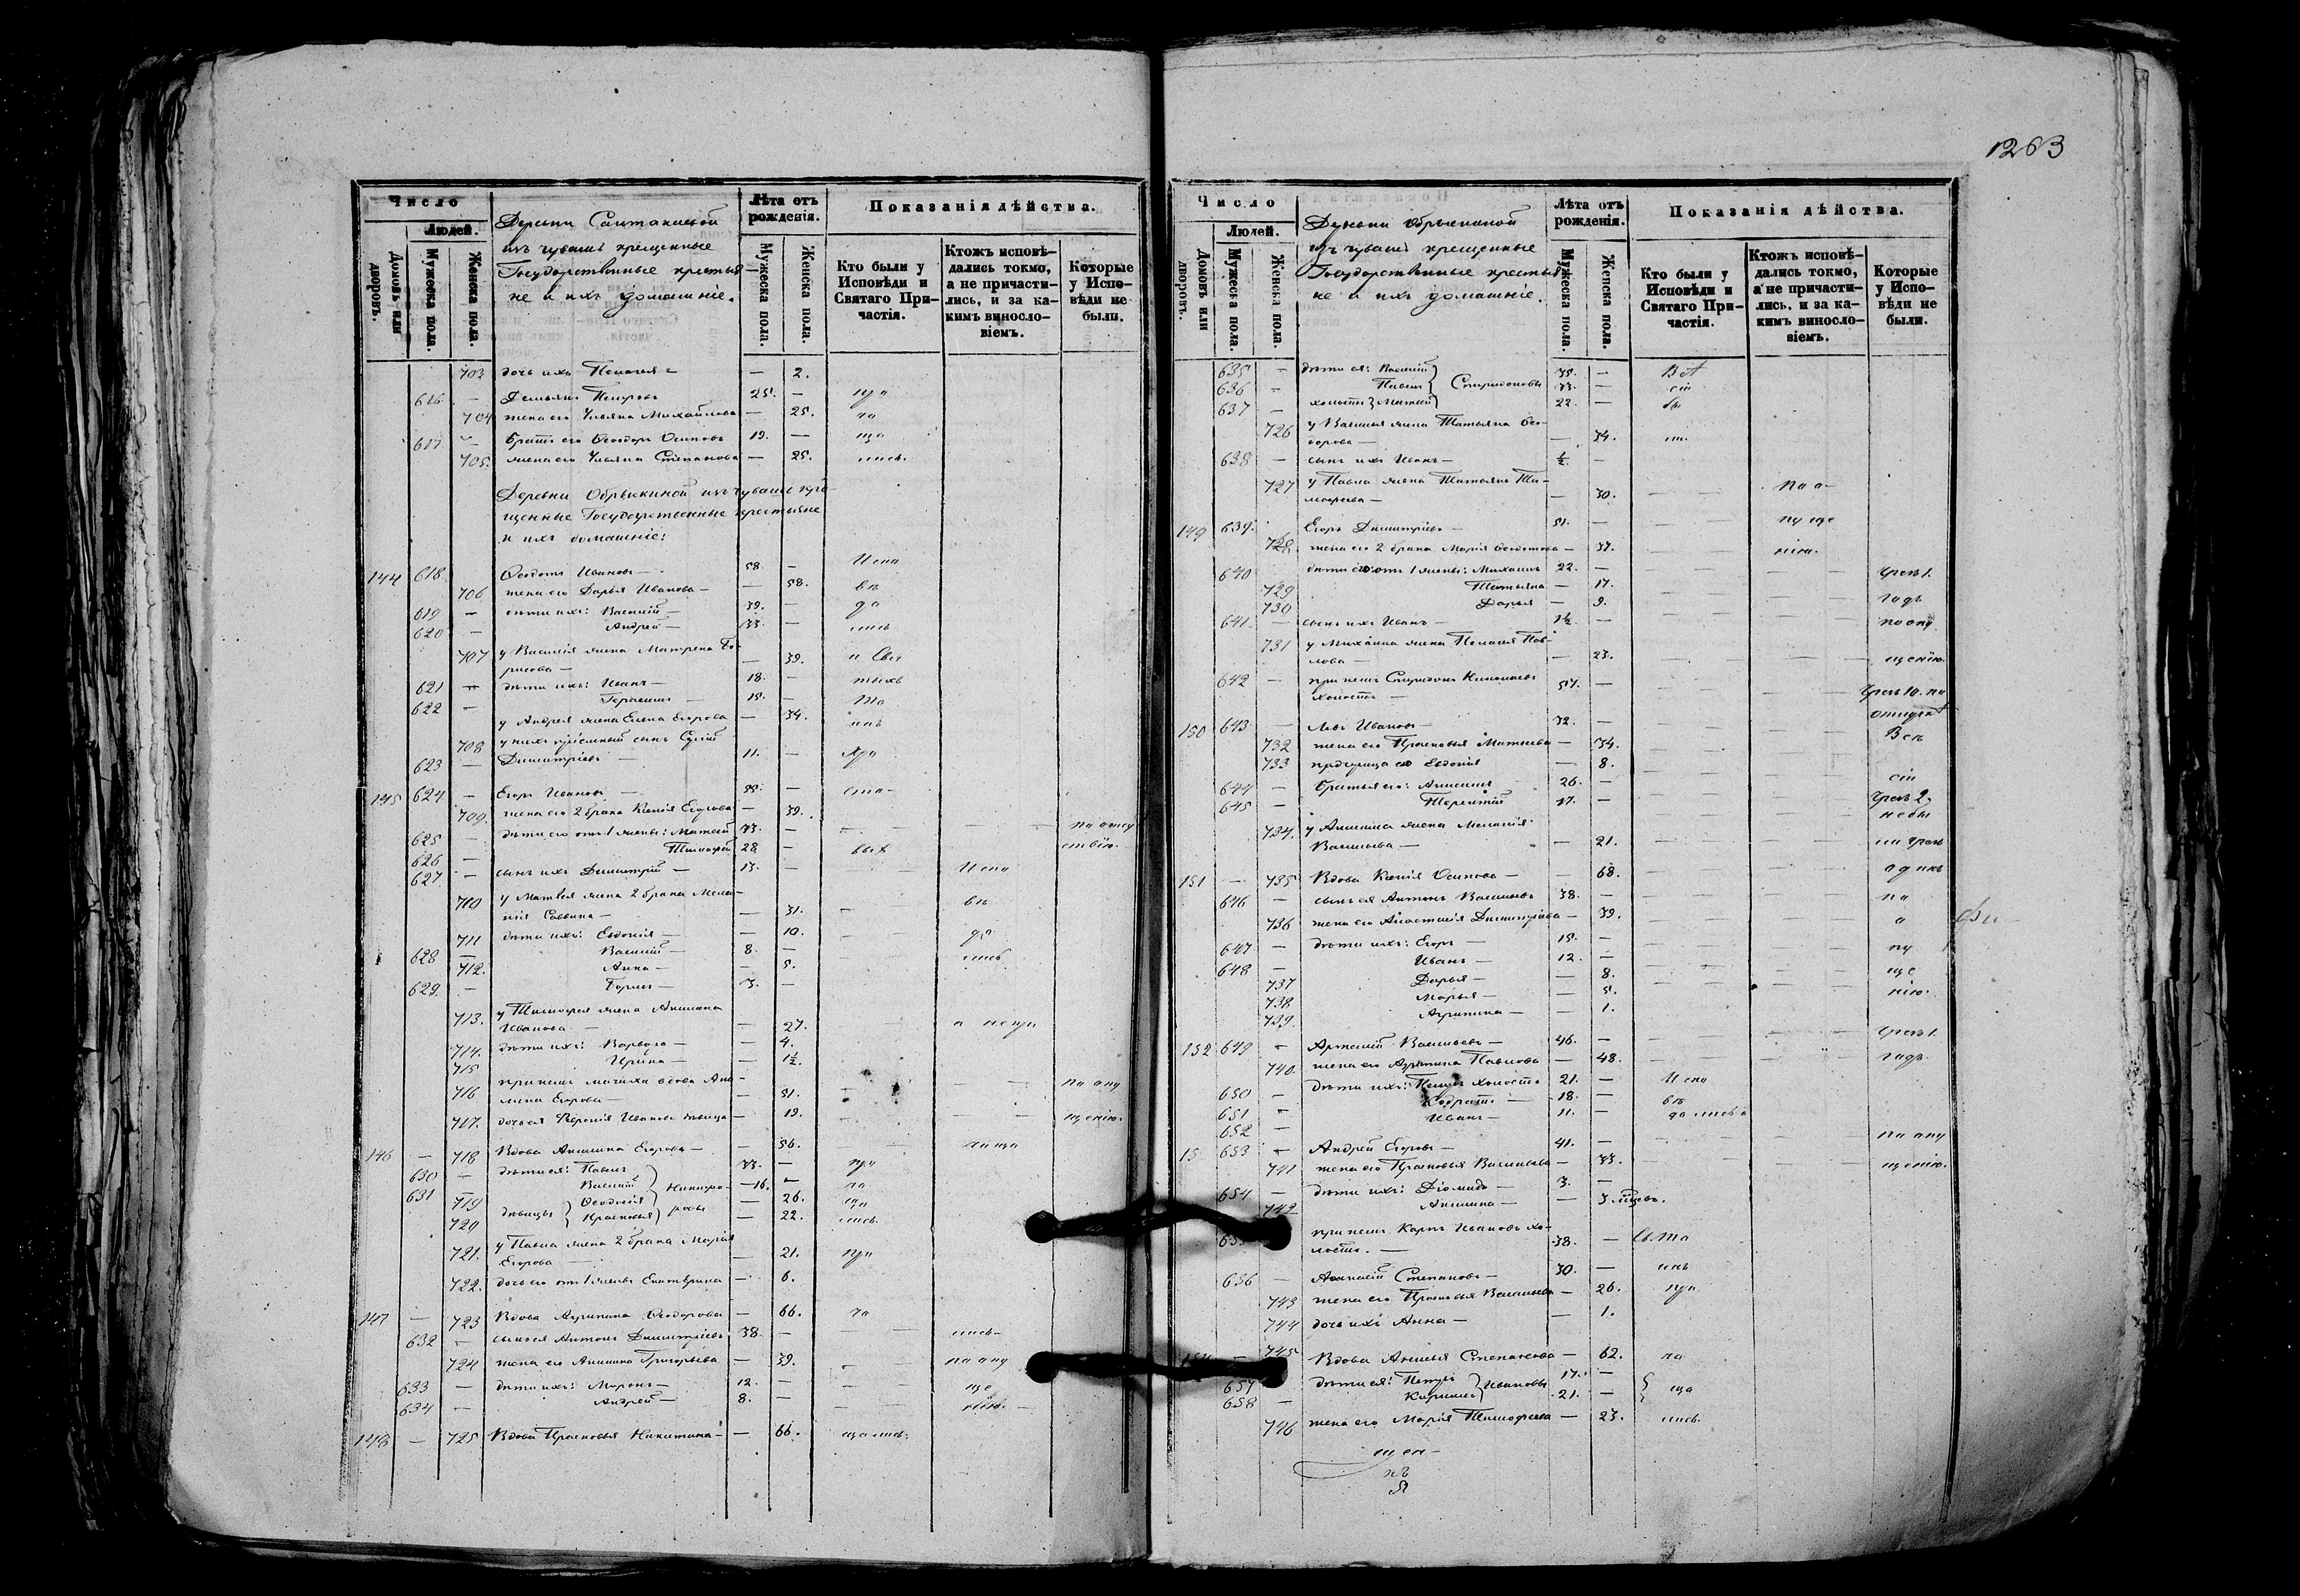 1263
Число
Людей.
Домовъ или дворовъ.
Мужеска пола.
Женска пола.
Деревни Салтакиевой
изъ чувашъ крещенные
Государственные крестья-
не и ихъ домашніе.
Лѣта отъ рожденія.
Мужеска пола.
Женска пола.
Показанія дѣйства.
Кто были у Исповѣди и Святаго Причастія.
Ктожъ исповѣдались токмо, а не причастились, и за какимъ винословіемъ.
Которые у Исповѣди не были.
703 дочь ихъ Пелагея — 2.
616 — Демьянъ Петровъ 25. — при
704 жена его Ульяна Михайлова — 25. ча
617 — братъ его Ѳеодоръ Осиповъ 19. — ща
705. жена его Ульяна Степанова — 25. лись.
Деревни Обрыкиной изъ чувашъ кре-
щенные Государственные крестьяне
и ихъ домашніе:
144 618 Ѳедотъ Ивановъ — 58. — Испо
706 жена его Дарья Иванова — — 58. вѣ
619 — дѣти ихъ: Василій — 39. — да
620 — Андрей — 33. — лись
707 у Василія жена Матрена Бо-
рисова — — 39. и Свя
621 — дѣти ихъ: Иванъ — 18. — тыхъ
622 — Герасимъ — 15. — Та
708 у Андрея жена Елена Егорова — 34. инъ
у нихъ пріемный сынъ Сергій
623 — Димитріевъ — 11. — при
145 624 — Егоръ Ивановъ — 55. —
709. жена его 2 брака Ксенія Егорова — 39.
625 — дѣти его отъ 1 жены: Матвей 33. — по отсу
626 — Тимофей 28. — ствію.
627 — сынъ ихъ Димитрій — 13. — Испо
710 у Матвея жена 2 брака Мела-
нія Саввина — — 31. — вѣ
711 дѣти ихъ: Евдокія — — 10. да
628 — Василій — 8. — лись
712. Анна — — 5.
629. — Борисъ — 3. —
713. у Тимофея жена Акилина
Иванова — — 27. — а не при
714. дѣти ихъ: Варвара — — 4.
715 Ирина — — 1½.
716 при нихъ мачиха вдова Аки-
лина Егорова — — 51. — по опу
717. дочь ея Ксенія Иванова дѣвица — 19. — щенію.
146 — 718 Вдова Акилина Егорова — — 56. — чаща
630 — дѣти ея: Павелъ 33. — при
631 — Василій Никифо- 16. — ча
719 дѣвицы Ѳеодосія ровы — 26. ща
720 Прасковья — 22. лись.
721. у Павла жена 2 брака Марія
Егорова — — 21. при
722. дочь его отъ 1 жены Екатерина — 6.
147 — 723 Вдова Агрипина Ѳеодорова — 66. ча
632 — сынъ ея Антонъ Димитріевъ 38. — лись
724 жена его Акилина Григорьева — 39. — по опу
633 — дѣти ихъ: Миронъ — 12. — ще
634 — Андрей — 8. — нію.
148 — 725 Вдова Прасковья Никитина — 66. щались.
Число
Людей.
Домовъ или дворовъ.
Мужеска пола.
Женска пола.
Деревни Обрыкиной
изъ чувашъ крещенные
Государственные крестья-
не и ихъ домашніе.
Лѣта отъ рожденія.
Мужеска пола.
Женска пола.
Показанія дѣйства.
Кто были у Исповѣди и Святаго Причастія.
Ктожъ исповѣдались токмо, а не причастились, и за какимъ винословіемъ.
Которые у Исповѣди не были.
635 — дѣти ея: Василій 35. —
636 — Павелъ Спиридоновы 33. —
637 — холостъ Матвей 22. — бы
726 у Василья жена Татьяна Ѳео-
дорова — — 34. ли.
638 — сынъ ихъ Иванъ — ½. —
727 у Павла жена Татьяна Ти-
моѳеева — — 30. — по о-
149 639. Егоръ Димитріевъ — 51. — пуще
728. жена его 2 брака Марія Ѳедотова — 37. нію.
640 дѣти его отъ 1 жены: Михаилъ 22. — Чрезъ 1.
729 Татьяна — — 17. годъ
730 Дарья — — 9.
641 — сынъ ихъ Иванъ — 1½ — по опу
731 у Михаила жена Пелагея Пав-
лова — — 23. щенію.
642 — при нихъ Спиридонъ Николаевъ
холостъ — 57. — Чрезъ 10. по
150 643 — Левъ Ивановъ — 32. —
732 жена его Прасковья Матвеева — 34.
733 падчерица его Евдокія — 8.
644 — братья его: Алексей 26. —
645 — Терентій 17. — Чрезъ 2
734. у Алексея жена Меланія
Васильева — — 21.
151 — 735 Вдова Ксенія Осипова — — 68. одинъ
646 — сынъ ея Антонъ Васильевъ 38. — по
736 жена его Анастасія Димитріева — 39. о
647 — дѣти ихъ: Егоръ — 15. — пу
648 — Иванъ — 12. — ще
737 Дарья — — 8. нію.
738 Марья — — 5.
739. Агрипина — — 1.
152 649 — Артемій Васильевъ — 46. — Чрезъ 1.
740. жена его Агрипина Павлова — 48. годъ.
650 — дѣти ихъ: Петръ холостъ 21. — Испо
651 — Кодратъ — 18. — вѣ
652 — Иванъ — 11. — дались
15 653 — Андрей Егоровъ — 41. — по опу
741 жена его Прасковья Васильева — 33. щенію.
654 — дѣти ихъ: Діомидъ — 3. —
742 Акилина — — 3 мѣсъ.
при нихъ Карпъ Ивановъ хо-
лостъ. — 38. — Св. Та
656 — Афанасій Степановъ — 30. — инъ
743 жена его Прасковья Васильева — 26. при
744 дочь ихъ Анна — — 1.
745 Вдова Анисья Степанова — 62. ча
657 дѣти ея: Петръ Ивановы 17. — ща
658 — Кирилъ 21. —
746 жена его Марія Тимофеева — 23. лись.